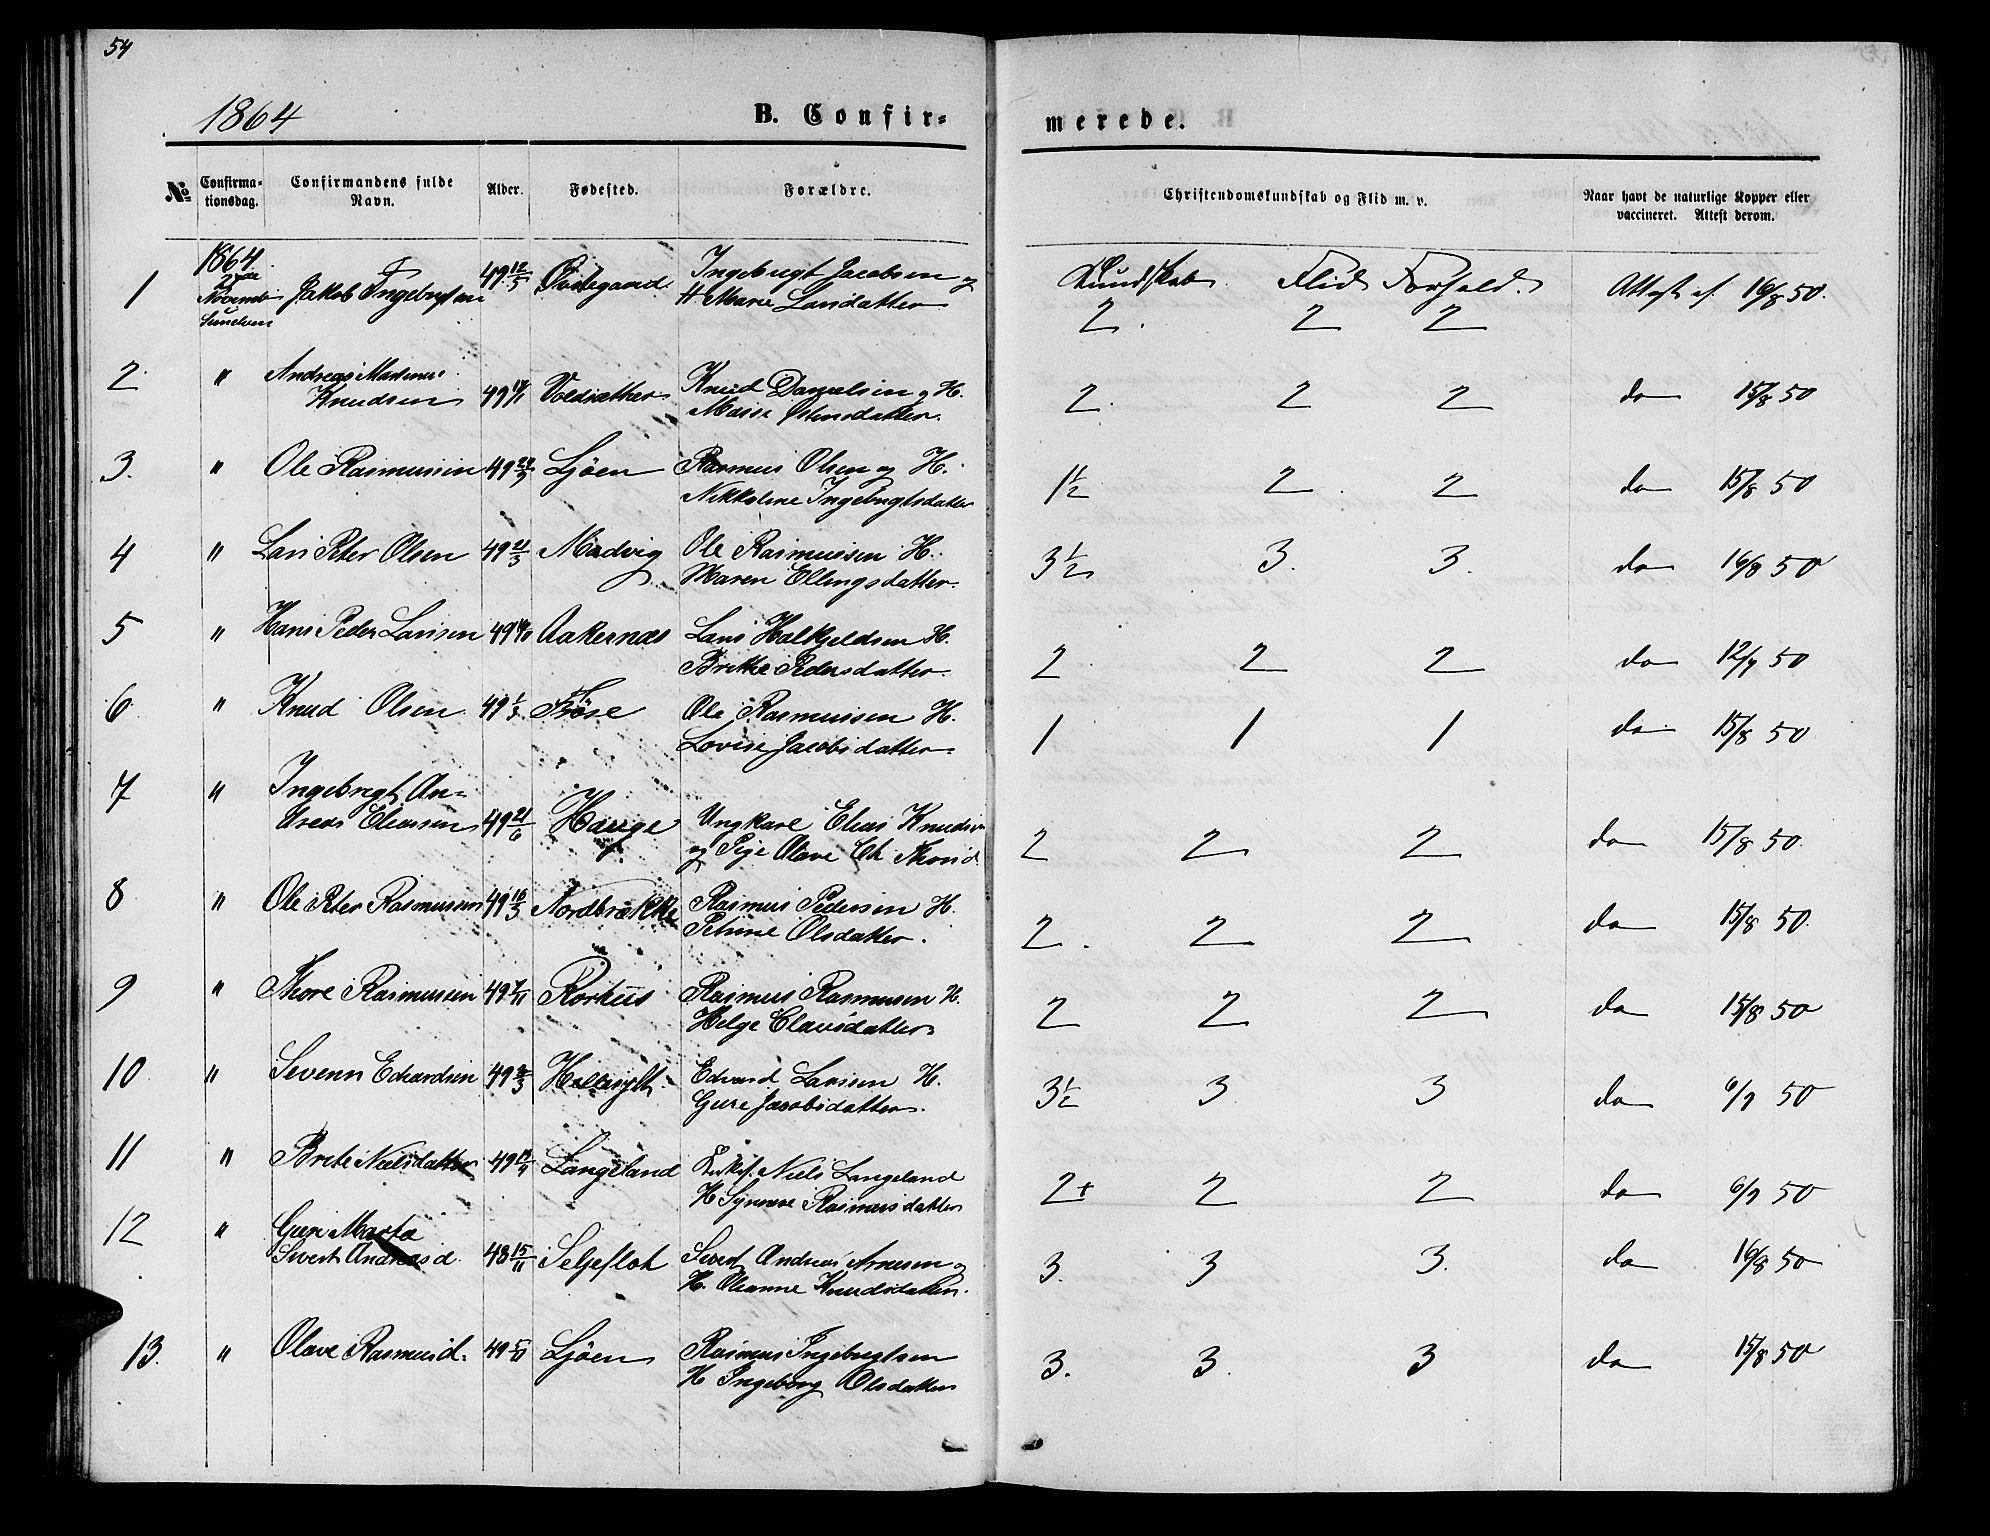 54
1864
B. Confir-
merede.
No
Confirma-
tionsdag.
Confirmandens fulde
Navn.
Alder.
Fødested.
Forældre.
Christendomskundskab og Flid m. v.
Naar havt de naturlige Kopper eller
vaccineret. Attest derom.
1864
Kundskab Flid Forhold.
1 November Jakob Ingebrigtsen 49 Ingebrigt Jacobsen og
H Marie Larsdatter
2. 2 2 Attest af 16/8 50.
2 " Andreas
Knudsen 49 Voldsæther Knud Danielsen og H.
Masse Østensdatter.
2. 2 2 do 15/8 50
3. " Ole Rasmussen 49 Ljöen Rasmus Olsen og H.
Nikkoline Ingebrigtsdatter
1½ 2 2 do 15/8 50
4 " Lars Peter Olsen 49 21/3 Madvig Ole Rasmussen H.
Maren Ellingsdatter.
3½ 3. 3. do 16/8 50
5 " Hans Peder Larsen 49 Aakernæs Lars Halkjeldsen H.
Brithe Pedersdatter.
2. 2 2 do 12/7 50
6 " Knud Olsen 49 Ole Rasmussen H.
Lovise Jacobsdatter
1 1 1 do 15/8 50
7 " Ingebrigt An-
dreas Eliassen 49 21/6 Hauge Ungkarl Elias Knudsen
og Pige Olave
2 2 2 do 15/8 50.
8 " Ole Peter Rasmussen 49 16/3 Nordbrække Rasmus Pedersen H.
Petrine Olsdatter.
2. 2 2 do 15/8 50.
9 " Thore Rasmussen 49 Korhus Rasmus Rasmussen H.
Helge Clausdatter
2 2 2 do 15/8 50
10 " Severin Edvardsen 49 Hellesylt Edvard Larsen H.
Gure Jacobsdatter.
3½ 3 3 do 6/7 50
11 " Brite Nielsdatter 49 Langeland Enkef. Niels Langeland
H Synneve Rasmusdatter
2+ 2 2 do 6/7 50
12 " Guri Marta
Sivert Andreasd. 48 15/11 Seljeflot Sivert Andreas Arnesen og
H. Oleanne Knudsdatter.
3. 3 3. do 16/8 50
13. " Olave Rasmusd. 49 Ljöen Rasmus Ingebrigtsen
H Ingeborg Olsdatter
3. 3. 3 do 15/8 50